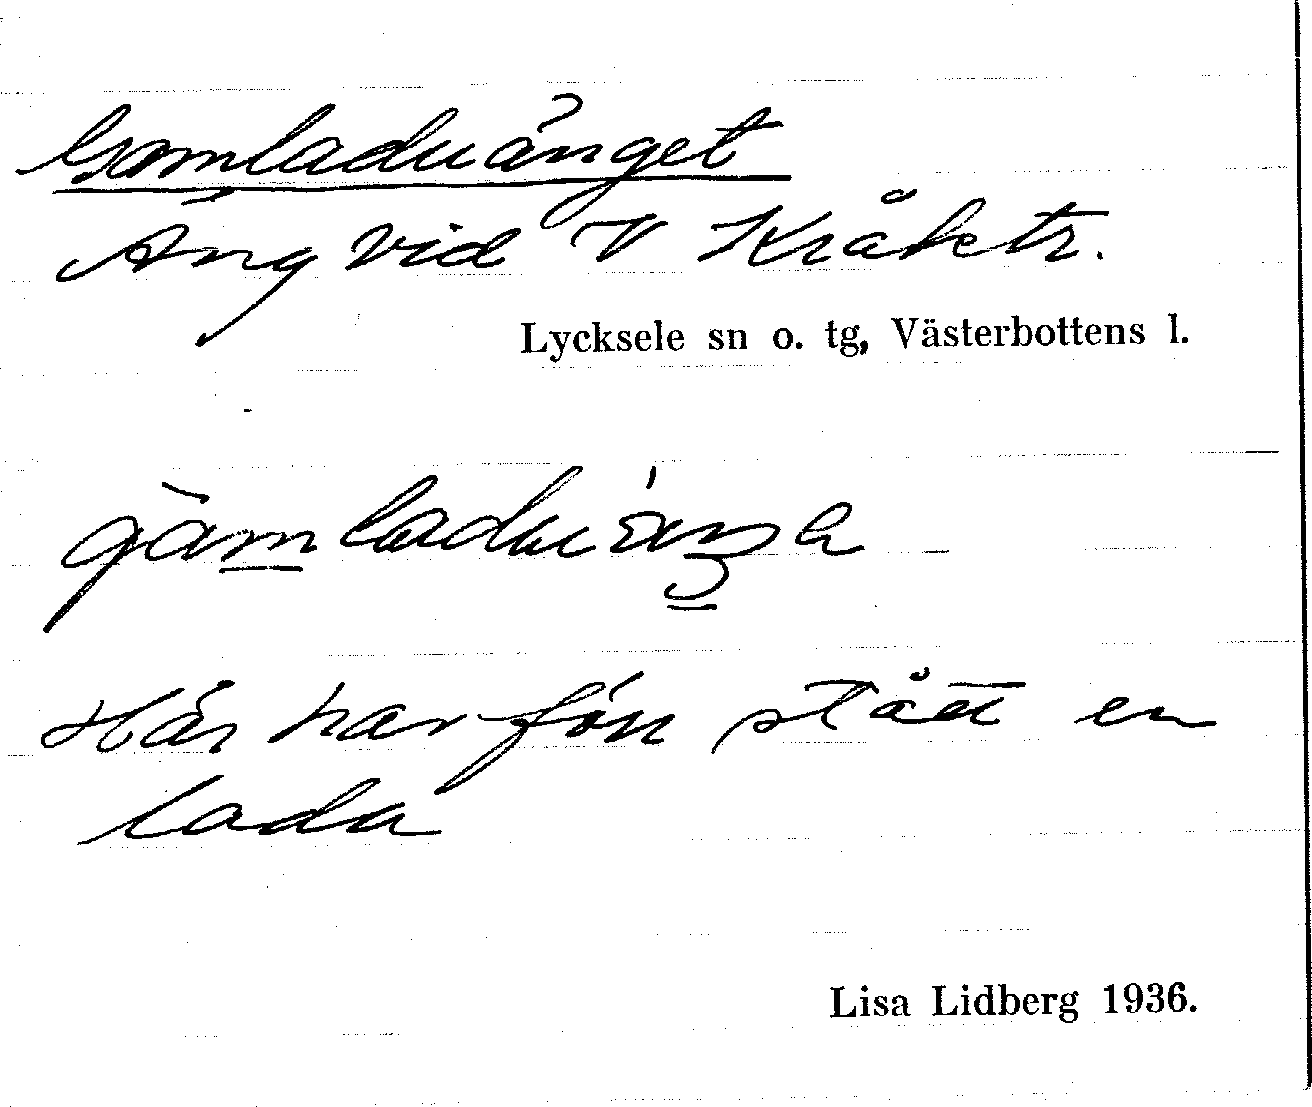 Gamladuänget
Äng vid V Kråketr.
Lycksele sn o. tg, Västerbottens l.
gàmladuáŋa
Här har förr stått en
lada
Lisa Lidberg 1936.